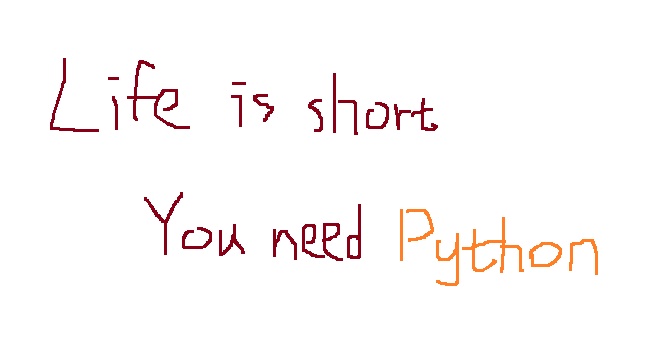 Life is short
You need Python